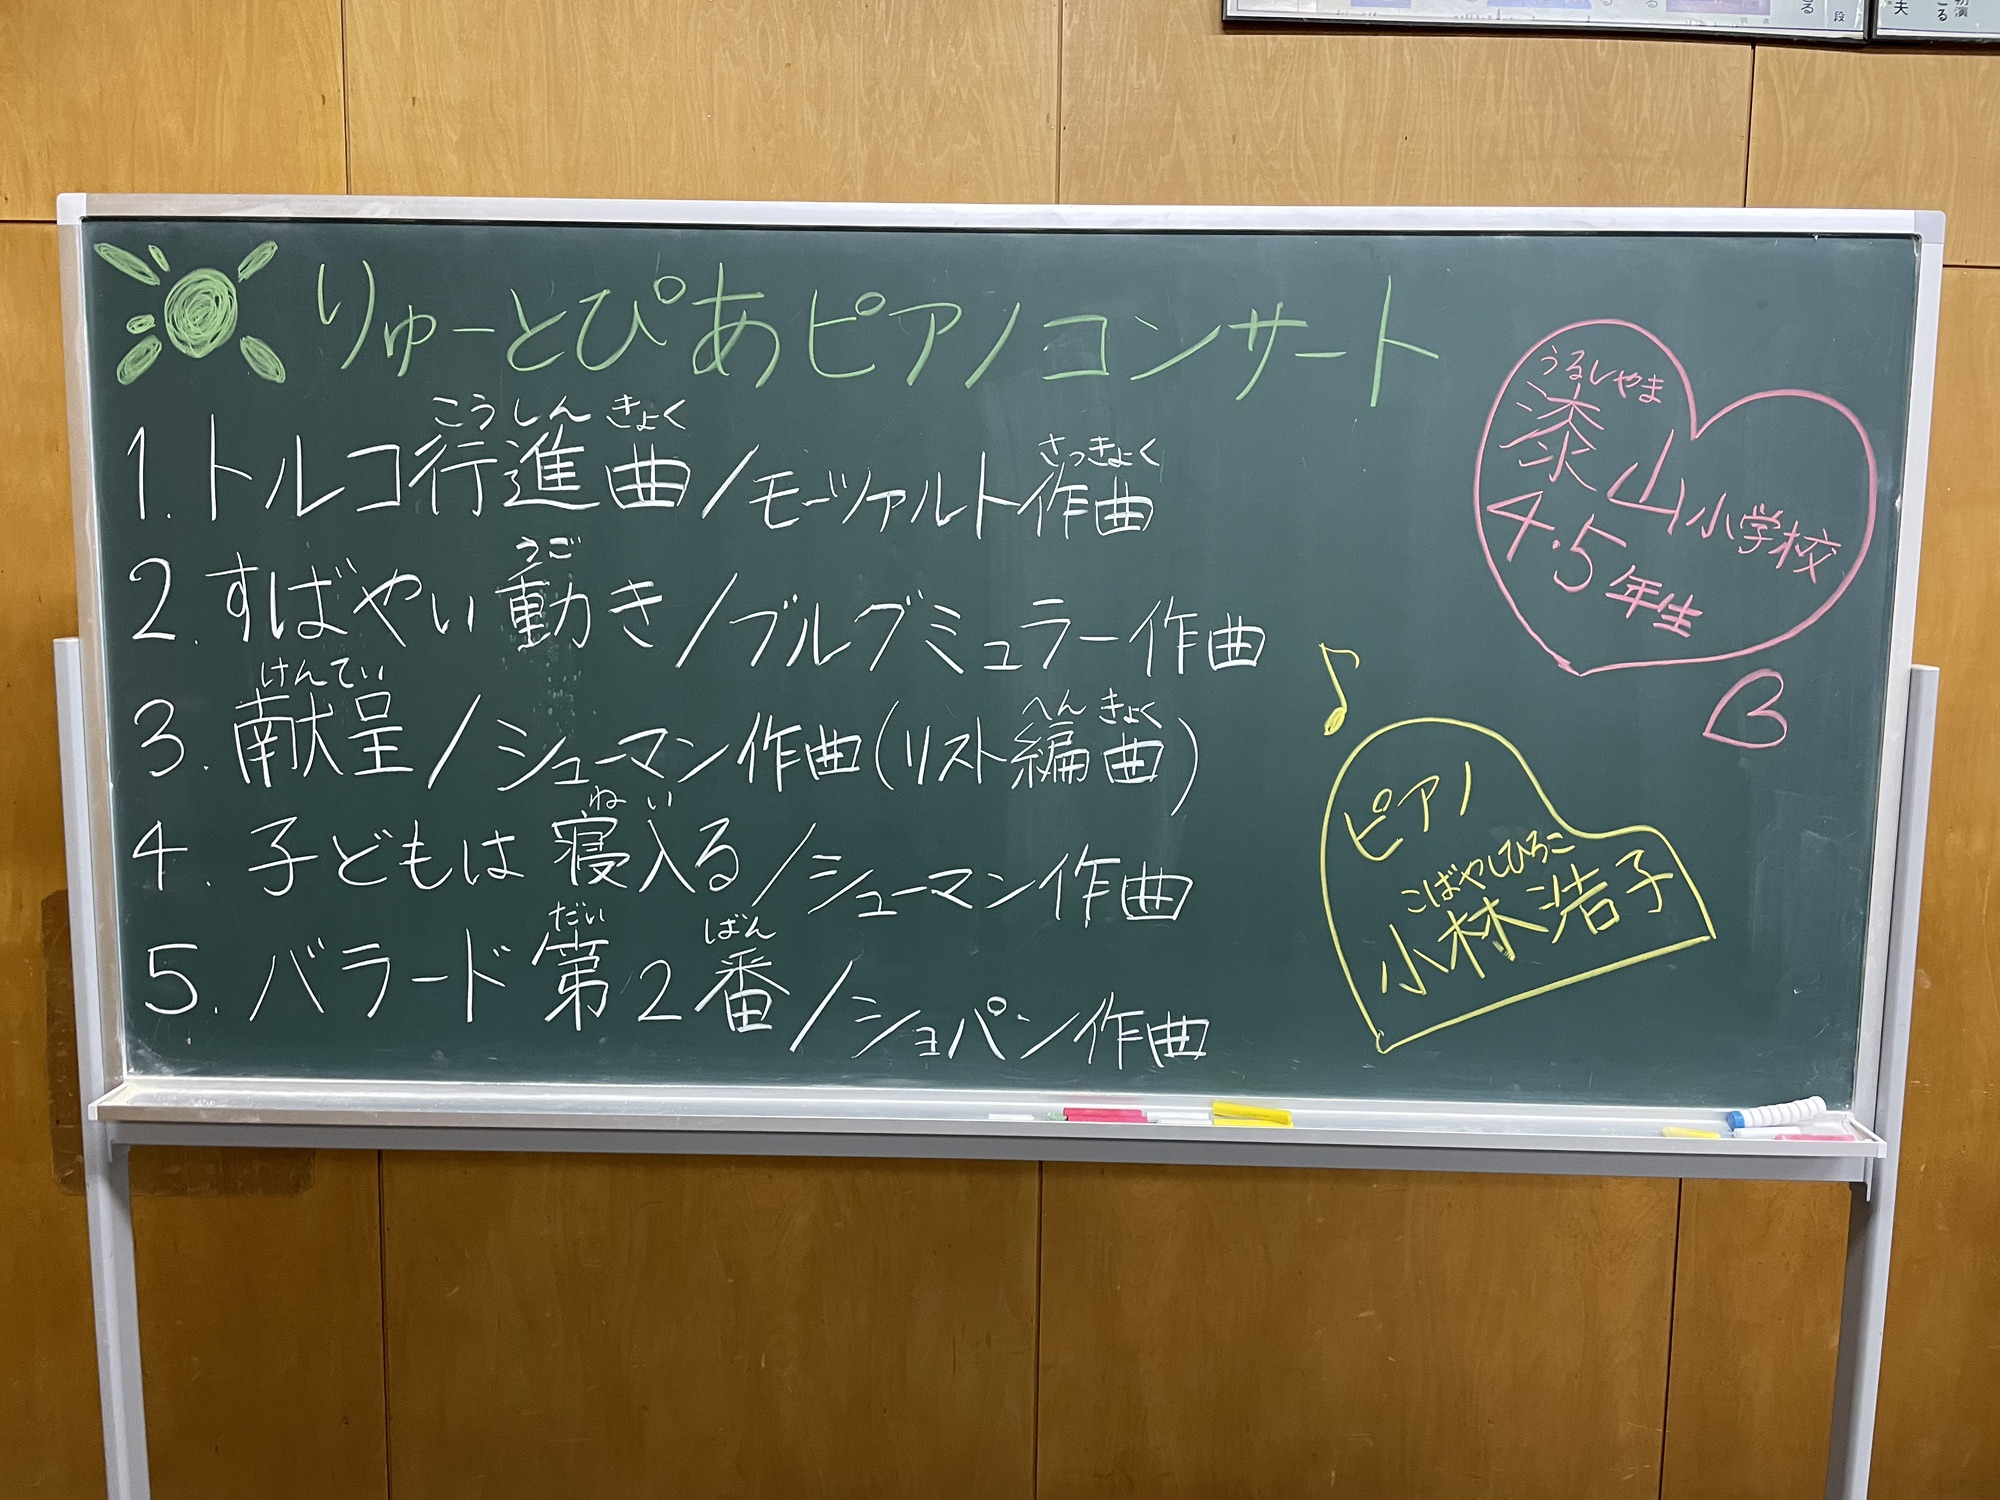 りゅーとぴあピアノコンサート
こうしんきょく さっきょく
1. トルコ行進曲/モーツァルト作曲
うご
2. すばやい動き/ブルグミュラー作曲
けんてい へんきょく
3. 献呈/シューマン作曲(リスト編曲)
ねい
4. 子どもは寝入る/シューマン作曲
だい ばん
5. バラード第2番/ショパン作曲
うるしやま
漆山小学校
4・5年生
ピアノ
こばやしひろこ
小林浩子